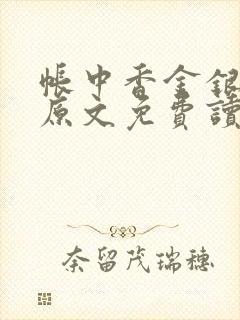 帳中香金銀
原文免費讀
奈留茂瑞穗